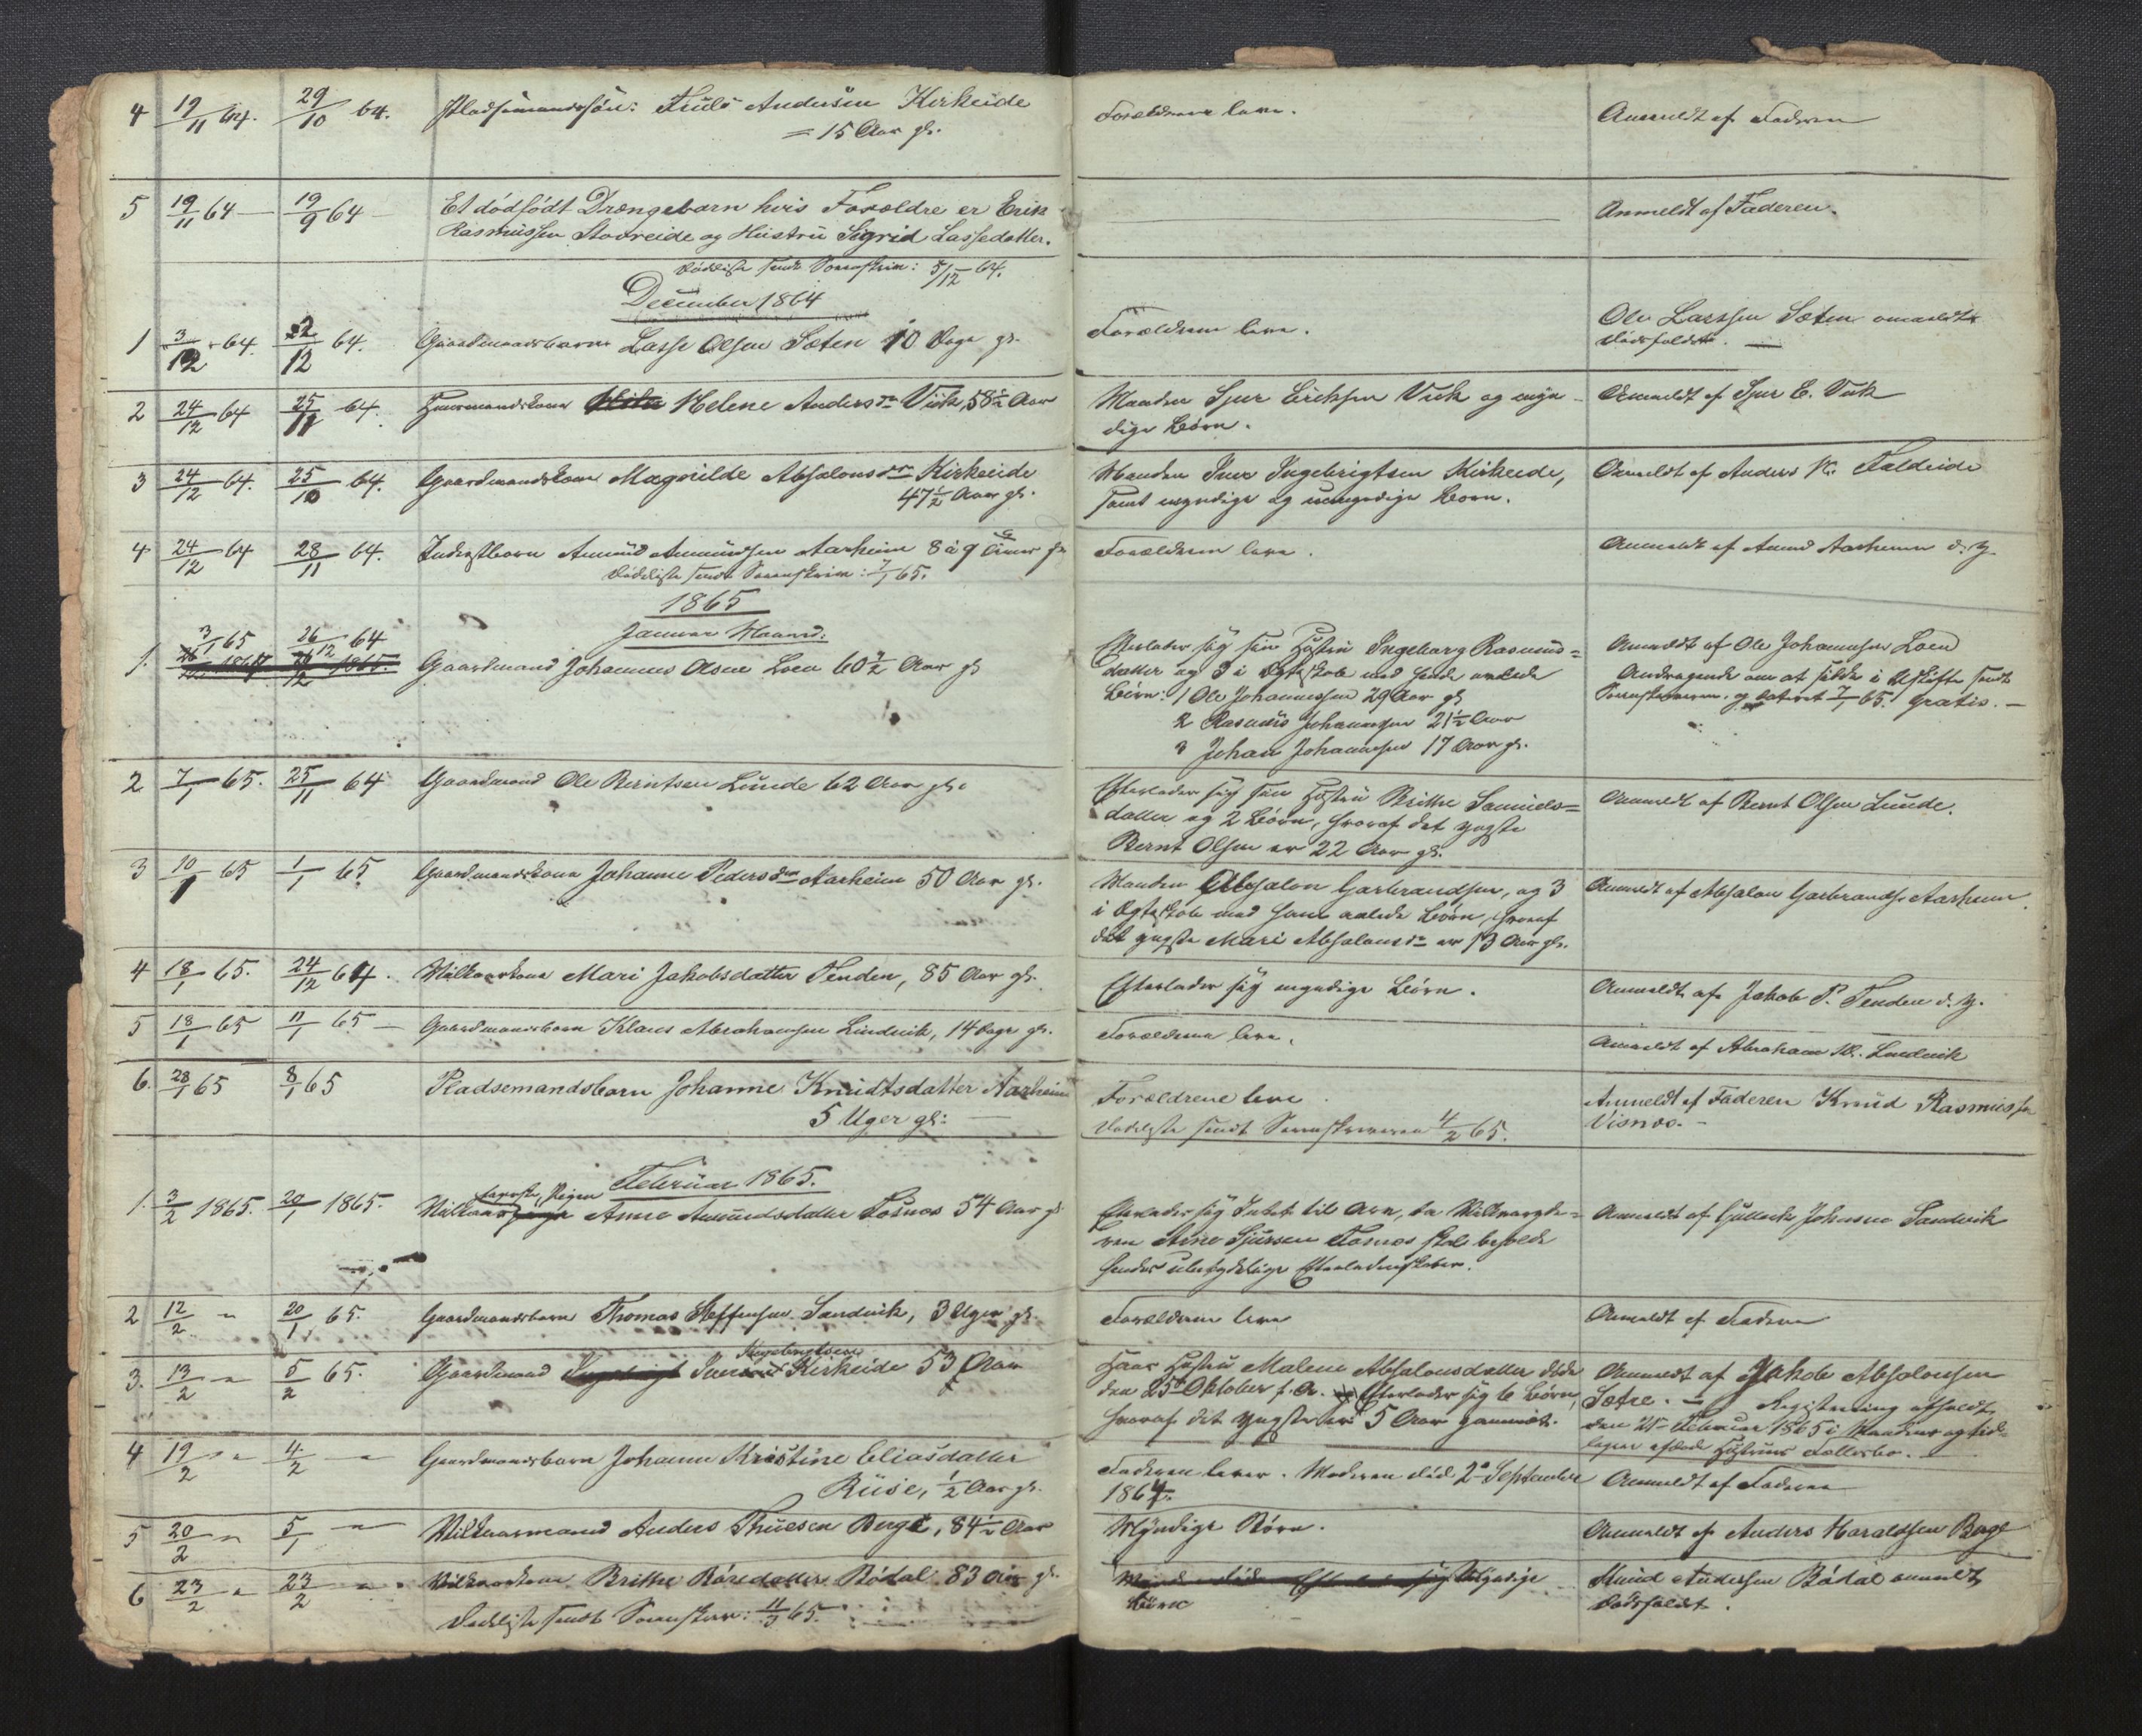 4 19/11 64. 29/10 64. Pladsemandssøn: Truls Andersen Kirkeide Forældrene leve. Anmeldt af Faderen
= 15 Aar gl.
5 19/11 64 — 19/9 64 — Et dødfødt Drængebarn hvis Forældre er Erik Anmeldt af Faderen.
Rasmussen Stovreide og Hustru Sigrid Lassedatter.
Dødsliste sendt Sorenskriv: 5/12 64.
December 1864
1 3/12 64. 2/12 64. Gaardmandsbarn Lasse Olsen Sæten 10 Dage gl. Forældrene leve. Ole Larssen Sæten anmeldte
Dødsfaldet. —
2 24/12 64 25/11 64. Huusmandskone Helene Andersdr Viik, 58½ Aar Manden Sjur Eriksen Viik og myn- Anmeldt af Sjur E. Viik
dige Børn.
3 24/12 64. 25/10 64. Gaardmandskone Magnilde Absalonsdr Kirkeide Manden Iver Ingebrigtsen Kirkeide, Anmeldt af Anders K. Faldeide
47½ Aar gl. samt myndige og umyndige Børn.
4 24/12 64 28/11 64. Inderstbarn Amund Amundsen Aarheim 8 à 9 Uger gl Forældrene leve. Anmeldt af Amund Aarheim d. y.
Dødsliste sendt Sorenskriv: 7/1 65.
1865
Januar Maaned.
1. 3/1 65 26/12 64 Gaardmand Johannes Olsen Loen 60½ Aar gl Efterlader sig sin Hustru Ingeborg Rasmus= Anmeldt af Ole Johannesen Loen
datter og 3 i Ægteskab med hende avlede Andragende om at sidde i Uskifte sendt
Børn: 1 Ole Johannessen 29 Aar gl Sorenskriveren, og dateret 7/1 65. gratis. —
2 Rasmus Johannesen 21½ Aar
3 Johan Johannesen 17 Aar gl.
2 7/1 65. 25/11 64 Gaardmand Ole Berntsen Lunde 62 Aar gl. Efterlader sig sin Hustru Brithe Samuels= Anmeldt af Bernt Olsen Lunde.
datter og 2 Børn, hvoraf det yngste
Bernt Olsen er 22 Aar gl.
3 10/1 65 1/1 65 Gaardmandskone Johanne Pedersdtr Aarheim 50 Aar gl. Manden Absalon Garbrandsen, og 3 Anmeldt af Absalon Garbrands. Aarheim.
i Ægteskab med ham avlede Børn, hvoraf
det yngste Mari Absalonsdr er 13 Aar gl.
4 18/1 65. 24/12 64. Vilkaarskone Mari Jakobsdatter Tenden, 85 Aar gl. Efterlader sig myndige Børn. Anmeldt af Jakob P. Tenden d. y.
5 18/1 65 11/1 65 — Gaardmandsbarn Klaus Abrahamsen Lindvik, 14 Dage gl. Forældrene leve. Anmeldt af Abraham Kl. Lindvik
6. 28/1 65 8/1 65 Pladsemandsbarn Johanne Knudtsdatter Aarheim Forældrene leve. Anmeldt af Faderen Knud Rasmussen
5 Uger gl: — Dødsliste sendt Sorenskriveren 4/2 65. Visnes. —
Februar 1865.
1. 3/2 1865. 20/1 1865. Pigen Anne Amundsdatter Tosnæs 54 Aar gl Efterlader sig Intet til Arv, da Anmeldt af Gullach Johnsen Sandvik
Arne Sjursen Tosnæs skal beholde
hendes ubetydelige Efterladenskaber.
2 12/2 " 20/1 65. Gaardmandsbarn Thomas Steffensen Sandvik, 3 Uger gl. Forældrene leve Anmeldt af Faderen
3. 13/2 " 5/2 65. Gaardmand Iver Ingebrigtsen Kirkeide 53 Aar Hans Hustru Malene Absalonsdatter døde Anmeldt af Jakob Absalonsen
den 25de Oktober f. A. Efterlader sig 6 Børn, Sætre. — Registrering afholdt
hvoraf det yngste er 5 Aar gammelt. den 21de Februar 1865 i Mandens og tid-
ligere afdøde Hustrues Fællesbo.
4 19/2 " 4/2 — Gaardmandsbarn Johanne Kristine Eliasdatter Faderen lever. Moderen død 2de September Anmeldt af Faderen
Ruse, ½ Aar gl. 1864.
5 20/2 " 5/1 — Vilkaarsmand Anders Thuesen Berge, 84½ Aar Myndige Børn. Anmeldt af Anders Haraldsen Berge
6 23/2 " 23/2 " Vilkaarskone Brithe Bårdsdatter Bødal 83 Aar gl. Myndige Knud Andersen Bødal anmeldt
Dødsliste sendt Sorenskriv: 11/3 65. Børn Dødsfaldet.